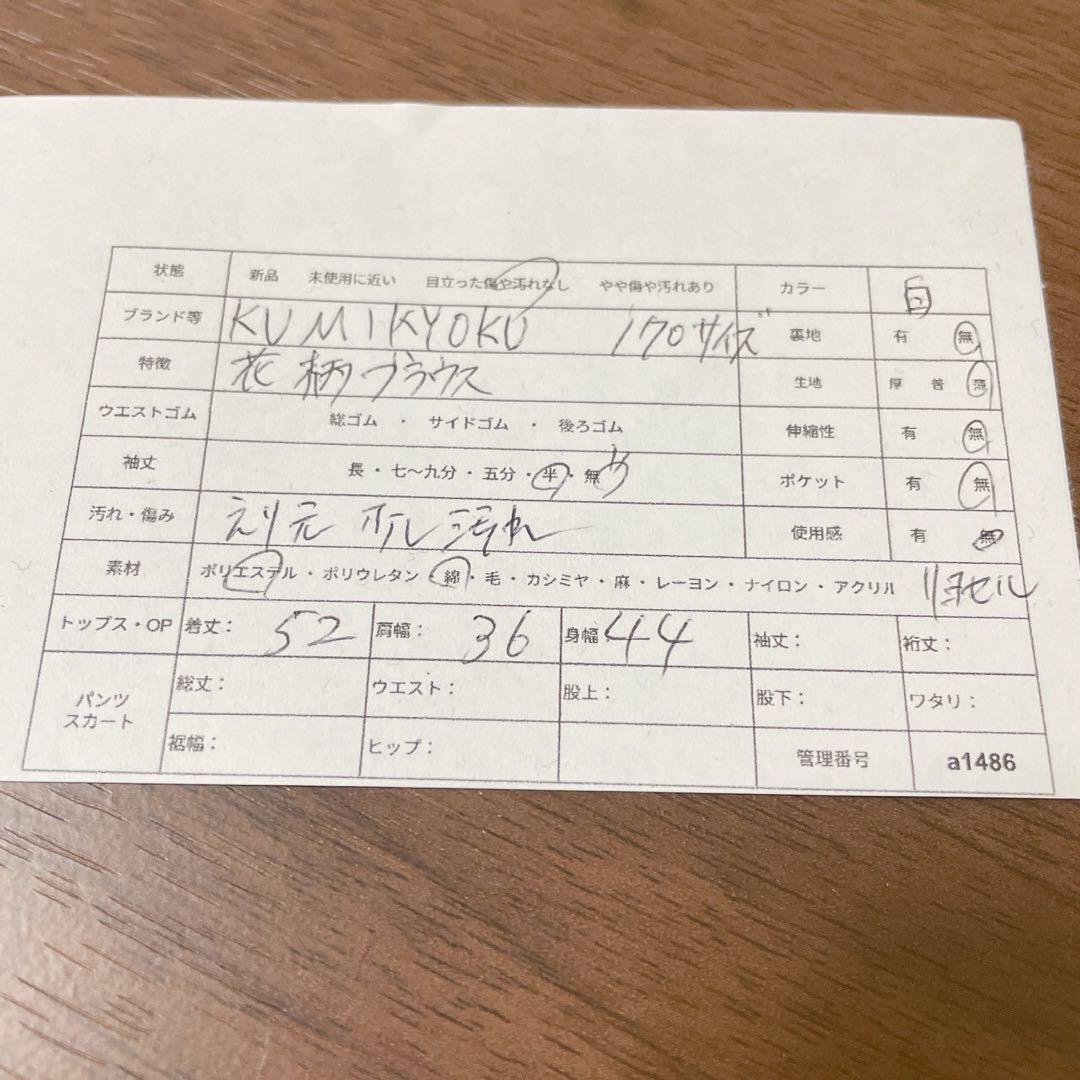 状態 新品 未使用に近い 目立った傷や汚れなし やや傷や汚れあり カラー 白
ブランド等 KUMIKYOKU 170サイズ 裏地 有 無
特徴 花柄ブラウス 生地 厚 普 薄
ウエストゴム 総ゴム ・ サイドゴム ・ 後ろゴム 伸縮性 有 無
袖丈 長・七〜九分・五分・半・無 ポケット 有 無
汚れ・傷み えり元 汚れ 使用感 有 無
素材 ポリエステル・ポリウレタン・綿・毛・カシミヤ・麻・レーヨン・ナイロン・アクリル リヨセル
トップス・OP 着丈: 52 肩幅: 36 身幅 44 袖丈: 裄丈:
パンツ スカート 総丈: ウエスト: 股上: 股下: ワタリ:
裾幅: ヒップ: 管理番号 a1486